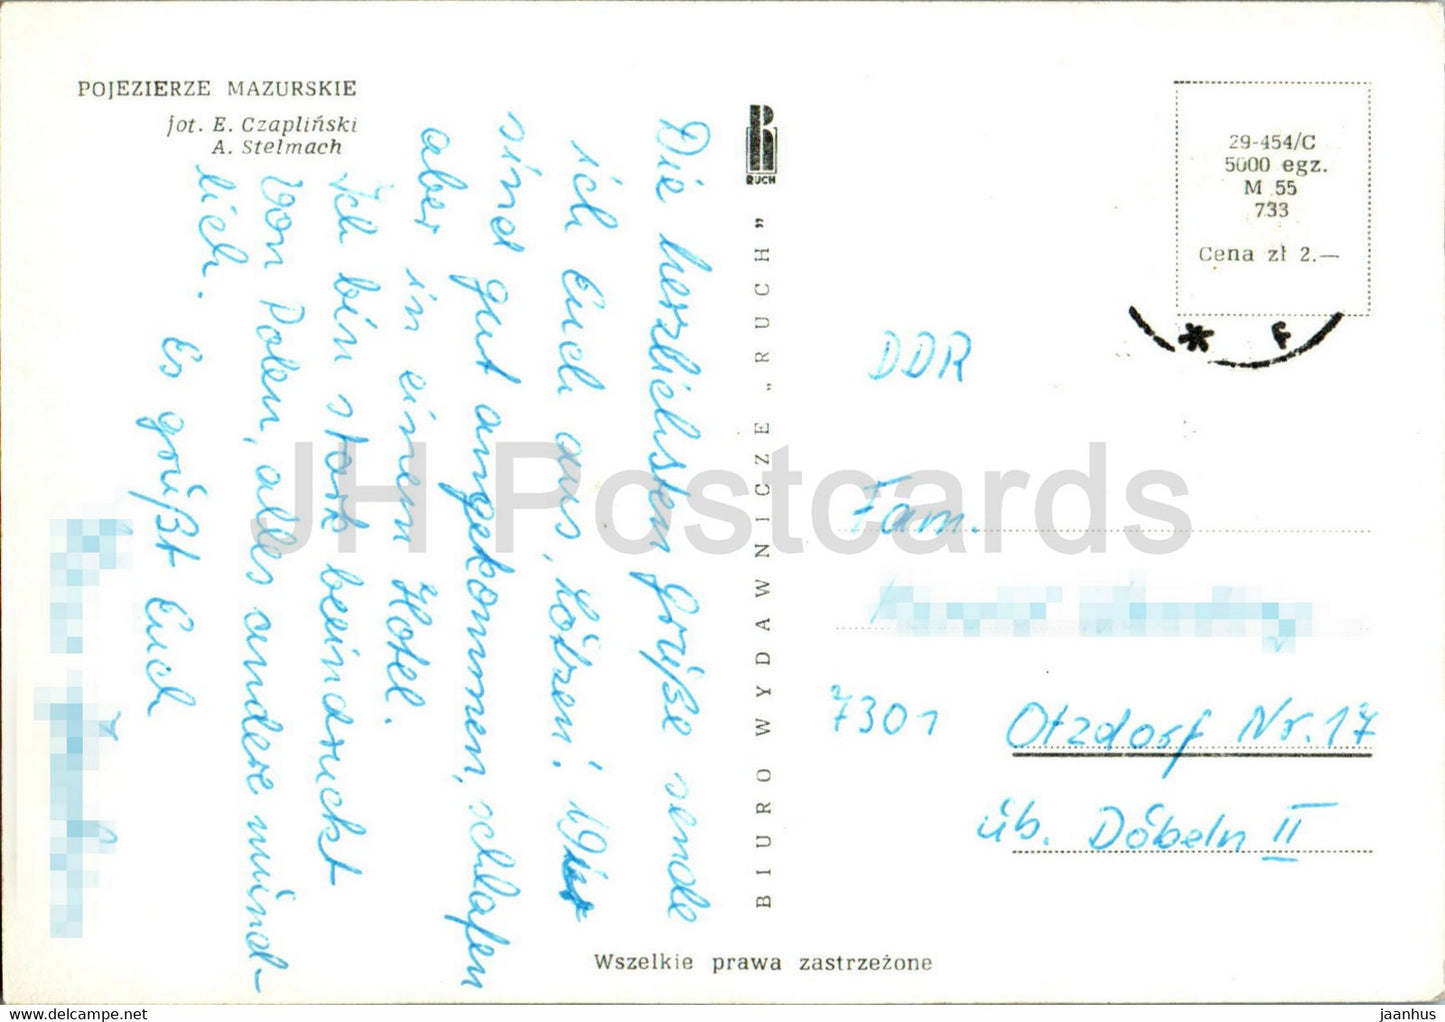 POJEZIERZE MAZURSKIE
fot. E. Czapliński
A. Stelmach
Die herzlichsten Grüße sende
ich Euch aus, Lötzen! Wir
sind gut angekommen, schlafen
aber in einem Hotel.
Ich bin stark beeindruckt
von Polen, alles andere münd-
lich. Es grüßt Euch
RUCH
BIURO WYDAWNICZE „RUCH”
29-454/C
5000 egz.
M 55
733
Cena zł 2.—
* F
DDR
Fam.
7301 Otzdorf Nr. 17
üb. Döbeln II
Wszelkie prawa zastrzeżone
JH Postcards
hippostcard.com/store/jaanhus